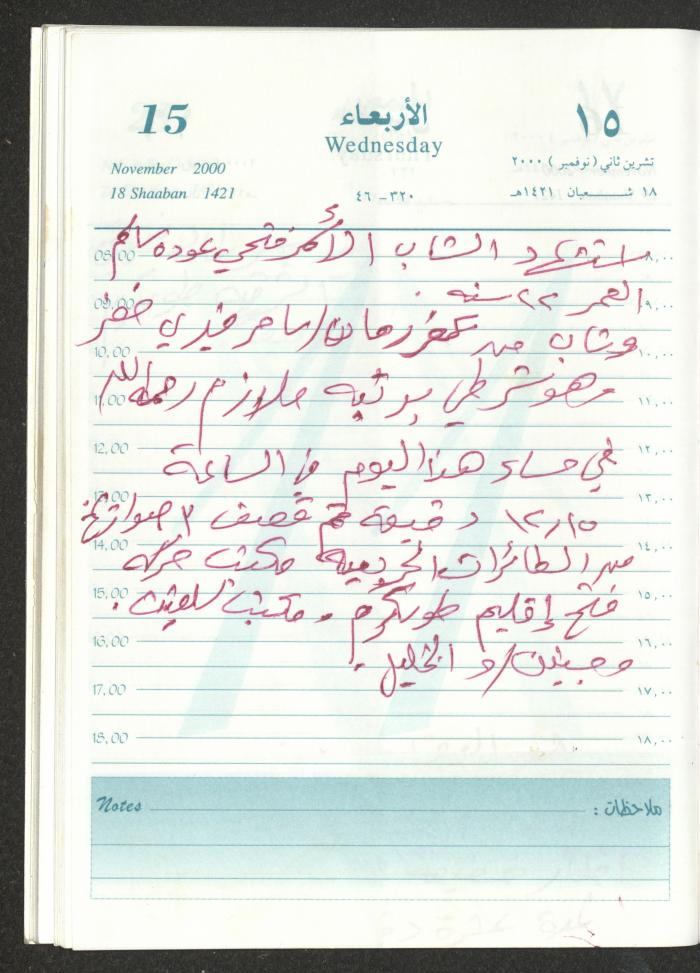 15 الأربعاء ١٥
Wednesday
November 2000 تشرين ثاني (نوفمبر) ٢٠٠٠
18 Shaaban 1421 ٤٦ - ٣٢٠ ١٨ شعبان ١٤٢١هـ
08,00 استشهد الشاب فتحي عوده سالم ٨,٠٠
العمر ٢٢ سنه
09,00 ٩,٠٠
وشاب من رمان / سامر
10,00 ١٠,٠٠
وهو شرطي برتبه ملازم رحمه الله
11,00 ١١,٠٠
12,00 ١٢,٠٠
في مساء هذا اليوم في الساعة
13,00 ١٣,٠٠
١٢,١٥ دقيقة تم قصف ٣ صواريخ
14,00 ١٤,٠٠
من الطائرات الحربيه مكتب حركه
15,00 ١٥,٠٠
فتح إقليم طولكرم. ومكتب سلفيت.
16,00 ١٦,٠٠
وجنين / والخليل.
17,00 ١٧,٠٠
18,00 ١٨,٠٠
Notes ملاحظات :